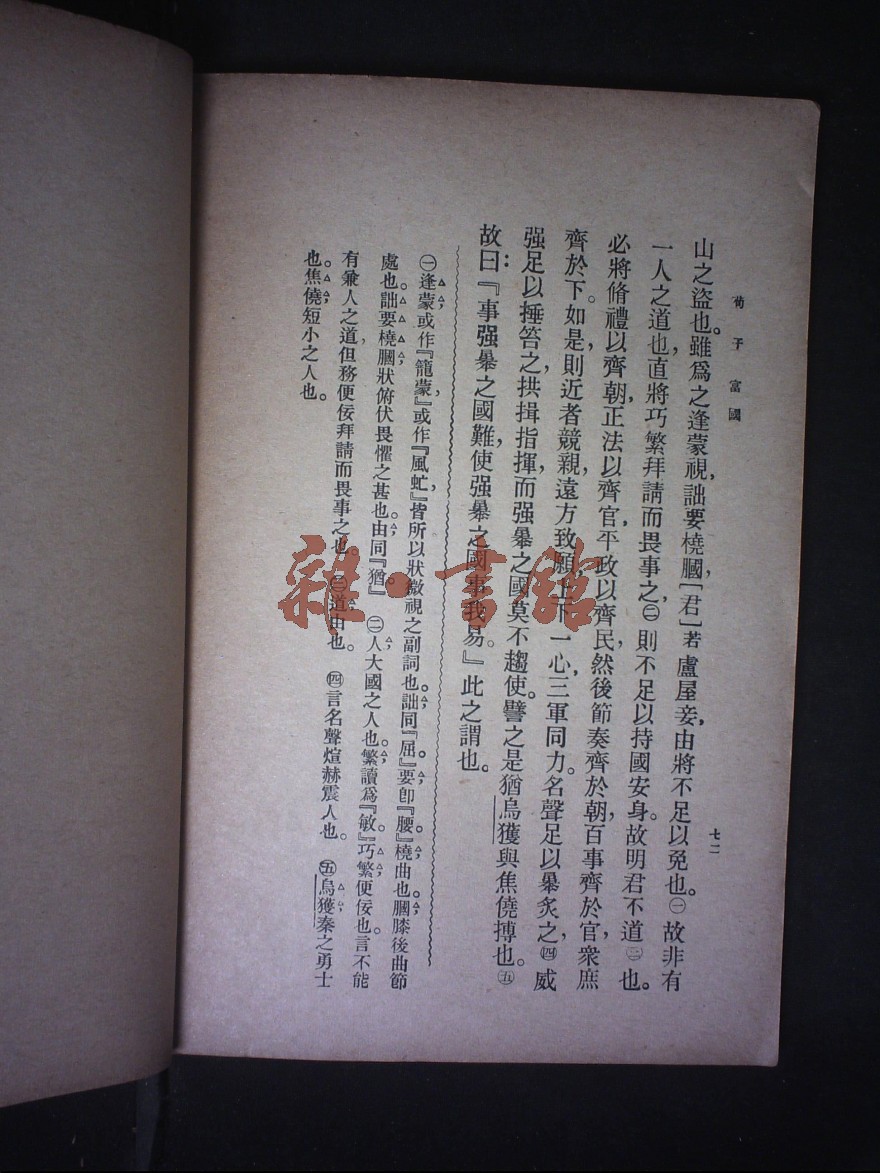 荀子富國
七二
山之盜也。雖爲之逢蒙視，詘要橈膕，［君］若盧屋妾，由將不足以免也。㊀故非有
一人之道也，直將巧繁拜請而畏事之，㊁則不足以持國安身。故明君不道㊂也。
必將脩禮以齊朝，正法以齊官，平政以齊民，然後節奏齊於朝，百事齊於官，衆庶
齊於下。如是，則近者競親，遠方致願，上下一心，三軍同力。名聲足以暴炙之，㊃威
强足以捶笞之，拱揖指揮，而强暴之國莫不趨使。譬之是猶烏獲與焦僥搏也。㊄
故曰：『事强暴之國難，使强暴之國事我易。』此之謂也。
㊀逢蒙，或作『籠蒙』，或作『風虻』，皆所以狀微視之副詞也。詘同『屈』。要，卽『腰』。橈，曲也。膕，膝後曲節
處也。詘要橈膕，狀俯伏畏懼之甚也。由，同『猶』。　㊁人，大國之人也。繁，讀爲『敏』。巧繁，便佞也。言不能
有兼人之道，但務便佞拜請而畏事之也。　㊂道，由也。　㊃言名聲煊赫震人也。　㊄烏獲，秦之勇士
也。焦僥，短小之人也。
雜·書館